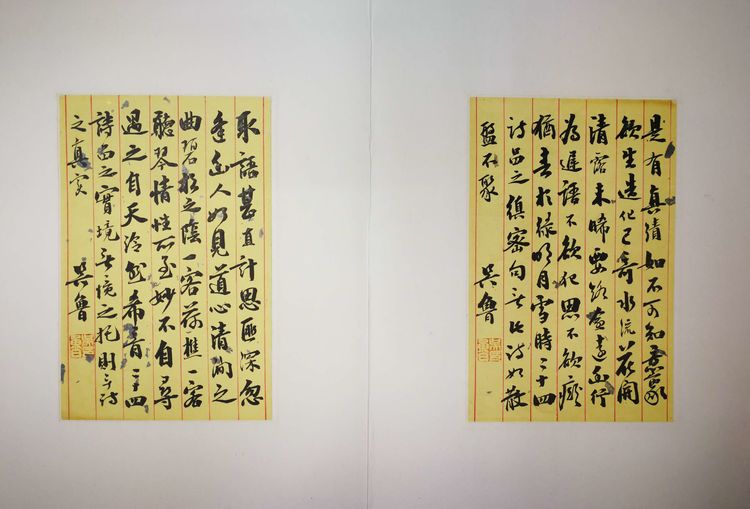 是有真蹟如不可知意象
欲生造化已奇水流花開
清露未晞要路愈遠幽行
為遲語不欲犯思不欲癡
猶春於綠明月雪時二十四
詩品之縝密句無此詩如散
盤不聚
吳魯
取語甚直計思匪深忽
逢幽人如見道心清澗之
曲碧松之陰一客荷樵一客
聽琴情性所至妙不自尋
遇之自天泠然希音二十四
詩品之實境無境之托則無詩
之真實
吳魯